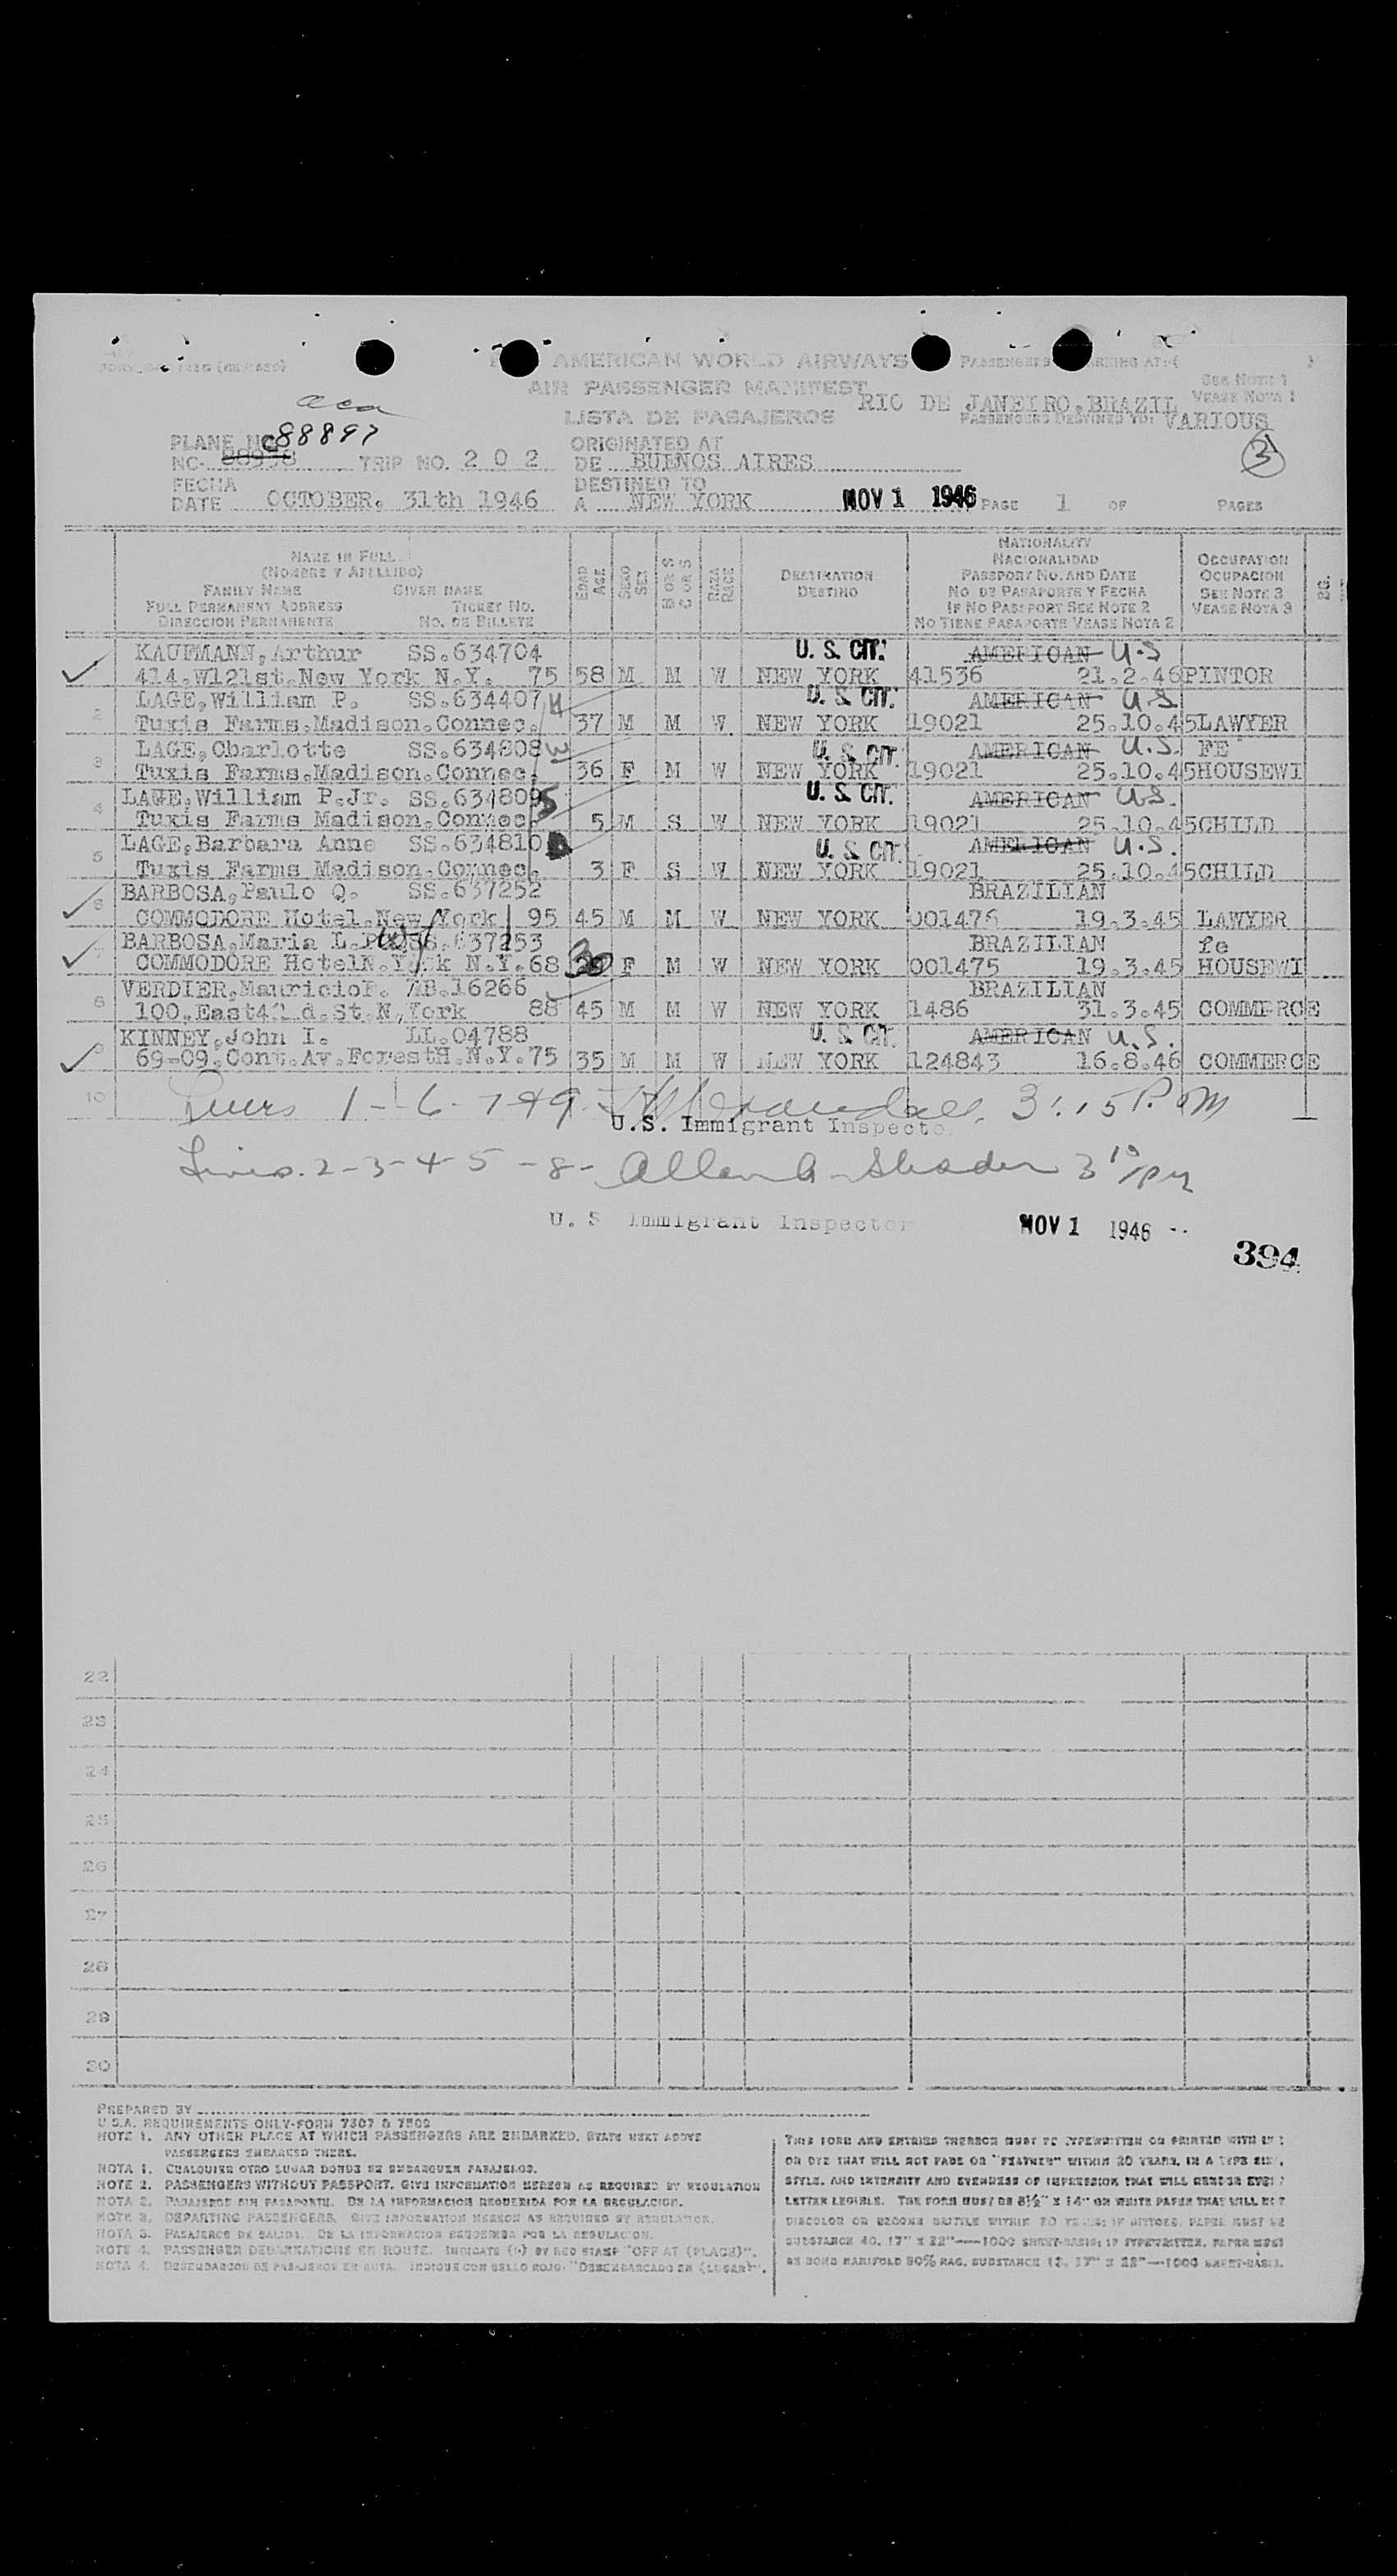 AMERICAN WORLD AIRWAYS
PASSENGERS
AIR PASSENGER MANIFEST
SEE NOTE 1
RIO DE JANEIRO.BRAZIL
VEASE NOTA 1
LISTA DE PASAJEROS
PASSENGERS DESTINED TO: VARIOUS
3
PLANE NO. C88897
ORIGINATED AT
NC- 88938 TRIP NO. 2 0 2 DE BUENOS AIRES
FECHA
DESTINED TO
DATE OCTOBER. 31th 1946 A NEW YORK NOV 1 1946 PAGE 1 OF PAGES
NAME IN FULL
(NOMBRE Y APELLIDO)
FAMILY NAME GIVEN NAME
FULL PERMANENT ADDRESS TICKET NO.
DIRECCION PERMANENTE NO. DE BILLETE
EDAD AGE
SEXO SEX
M OR S C OR S
RAZA RACE
DESTINATION
DESTINO
NATIONALITY
NACIONALIDAD
PASSPORT NO. AND DATE
NO DE PASAPORTE Y FECHA
IF NO PASSPORT SEE NOTE 2
NO TIENE PASAPORTE VEASE NOTA 2
OCCUPATION
OCUPACION
SEE NOTE 3
VEASE NOTA 3
KAUFMANN,Arthur SS.634704 U. S. CIT. AMERICAN U.S
414.W121st.New York N.Y. 75 58 M M W NEW YORK 41536 21.2.46 PINTOR
LAGE,William P. SS.634407 U. S. CIT. AMERICAN U.S.
2 Tuxis Farms.Madison.Connec. 37 M M W NEW YORK 19021 25.10.45 LAWYER
LAGE,Charlotte SS.634808 U. S. CIT. AMERICAN U.S. FE
3 Tuxis Farms.Madison.Connec. 36 F M W NEW YORK 19021 25.10.45 HOUSEWI
LAGE,William P.Jr. SS.634809 U. S. CIT. AMERICAN U.S.
4 Tuxis Farms Madison.Connec. 5 M S W NEW YORK 19021 25.10.45 CHILD
LAGE,Barbara Anne SS.634810 U. S. CIT. AMERICAN U.S.
5 Tuxis Farms Madison.Connec. 3 F S W NEW YORK 19021 25.10.45 CHILD
BARBOSA,Paulo Q. SS.637252 BRAZILIAN
6 COMMODORE Hotel.New York 95 45 M M W NEW YORK 001476 19.3.45 LAWYER
BARBOSA,Maria L. SS.637253 BRAZILIAN fe
COMMODORE HotelN.York N.Y.68 30 F M W NEW YORK 001475 19.3.45 HOUSEWI
VERDIER,MauricioF. AB.16266 BRAZILIAN
8 100.East42 d.St.N,York 88 45 M M W NEW YORK 1486 31.3.45 COMMERCE
KINNEY,John I. LL.04788 U. S. CIT. AMERICAN U.S.
69-09.Cont.Av.ForestH.N.Y.75 35 M M W NEW YORK 124843 16.8.46 COMMERCE
10 1-6-7&9 3:15 P.M
U.S. Immigrant Inspecto
Lines.2-3-4-5-8-
U. S Immigrant Inspector NOV 1 1946
394
22
23
24
25
26
27
28
29
30
PREPARED BY
U.S.A. REQUIREMENTS ONLY-FORM 7507 & 7509
NOTE 1. ANY OTHER PLACE AT WHICH PASSENGERS ARE EMBARKED, STATE NEXT ABOVE
PASSENGERS EMBARKED THERE.
NOTA 1. CUALQUIER OTRO LUGAR DONDE SE EMBARQUEN PASAJEROS.
NOTE 2. PASSENGERS WITHOUT PASSPORT. GIVE INFORMATION HEREON AS REQUIRED BY REGULATION
NOTA 2. PASAJEROS SIN PASAPORTE. DE LA INFORMACION REQUERIDA POR LA REGULACION.
NOTE 3. DEPARTING PASSENGERS. GIVE INFORMATION HEREON AS REQUIRED BY REGULATION.
NOTA 3. PASAJEROS DE SALIDA. DE LA INFORMACION REQUERIDA POR LA REGULACION.
NOTE 4. PASSENGER DEBARKATIONS EN ROUTE. INDICATE (B) BY RED STAMP "OFF AT (PLACE)".
NOTA 4. DESEMBARCOS DE PASAJEROS EN RUTA. INDIQUE CON SELLO ROJO: "DESEMBARCADO EN (LUGAR)".
THIS FORM AND ENTRIES THEREON MUST BE TYPEWRITTEN OR PRINTED WITH
OR DYE THAT WILL NOT FADE OR "FEATHER" WITHIN 20 YEARS, IN A TYPE
STYLE, AND INTENSITY AND EVENNESS OF IMPRESSION THAT WILL RENDER
LETTER LEGIBLE. THE FORM MUST BE 8½" X 14" ON WHITE PAPER THAT WILL NOT
DISCOLOR OR BECOME BRITTLE WITHIN 20 YEARS; IF DITTOED, PAPER MUST BE
SUBSTANCE 40, 17" X 22"—1000 SHEET-BASIS; IF TYPEWRITTEN, PAPER MUST
BE BOND MANIFOLD 50% RAG, SUBSTANCE 13, 17" X 22"—1000 SHEET-BASIS.